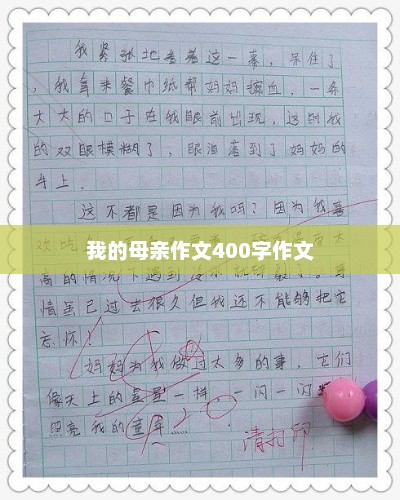 我紧张地看着这一幕，呆住了
，我拿来餐巾纸帮妈妈擦血，一条
大大的口子在我眼前出现，这时我
的双眼模糊了，眼泪落到了妈妈的
手上。
这不都是因为我吗？因为我喜
欢吃
我的母亲作文400字作文
高的情况下遇到
情虽已过去很久但我还不能够把它
忘怀！
妈妈为我做过太多的事，它们
像天上的星星一样，一闪一闪
照亮我的童年
请打印